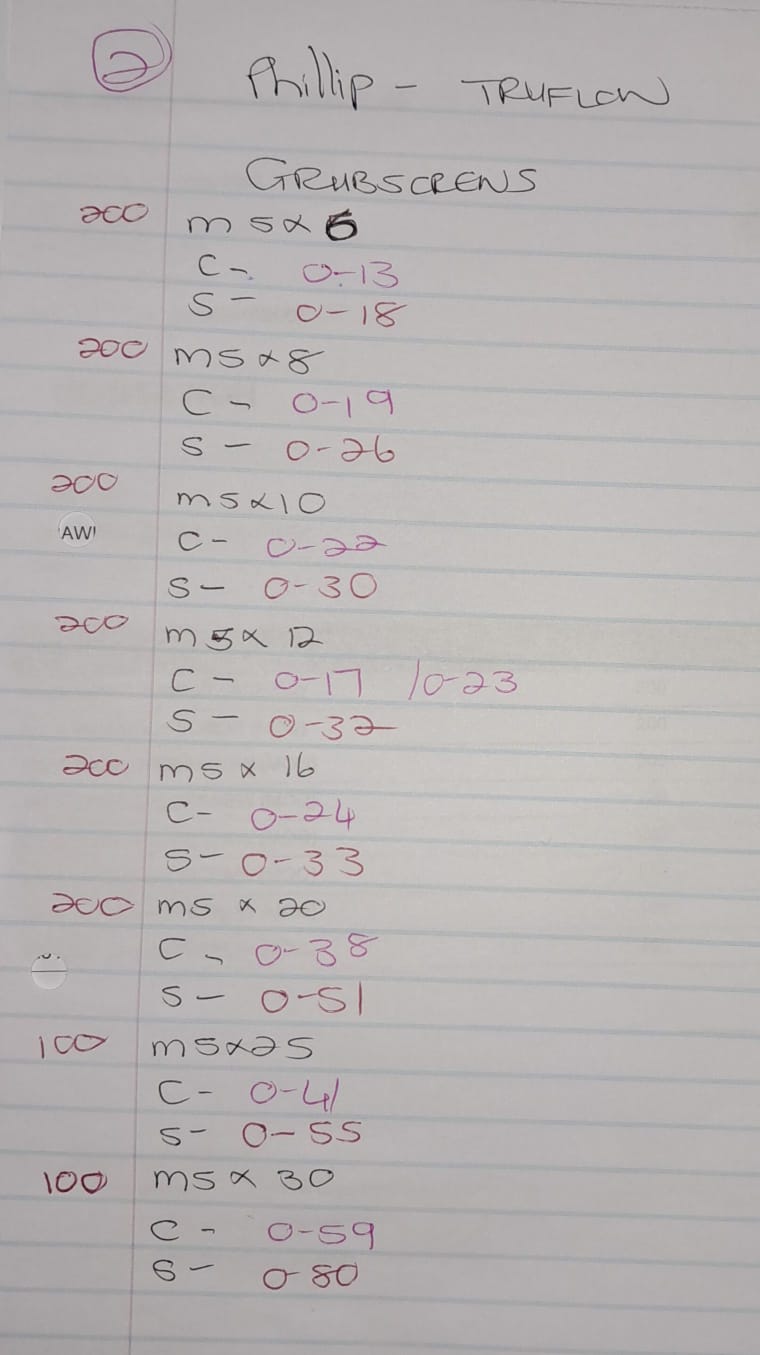 2
Phillip - TRUFLOW
GRUBSCREWS
200 m5x6
C- 0-13
S- 0-18
200 m5x8
C- 0-19
S- 0-26
200 m5x10
AW
C- 0-22
S- 0-30
200 m5x12
C- 0-17 /0-23
S- 0-32
200 m5 x 16
C- 0-24
S- 0-33
200 m5 x 20
C- 0-38
S- 0-51
100 m5x25
C- 0-41
S- 0-55
100 m5x30
C- 0-59
S- 0-80